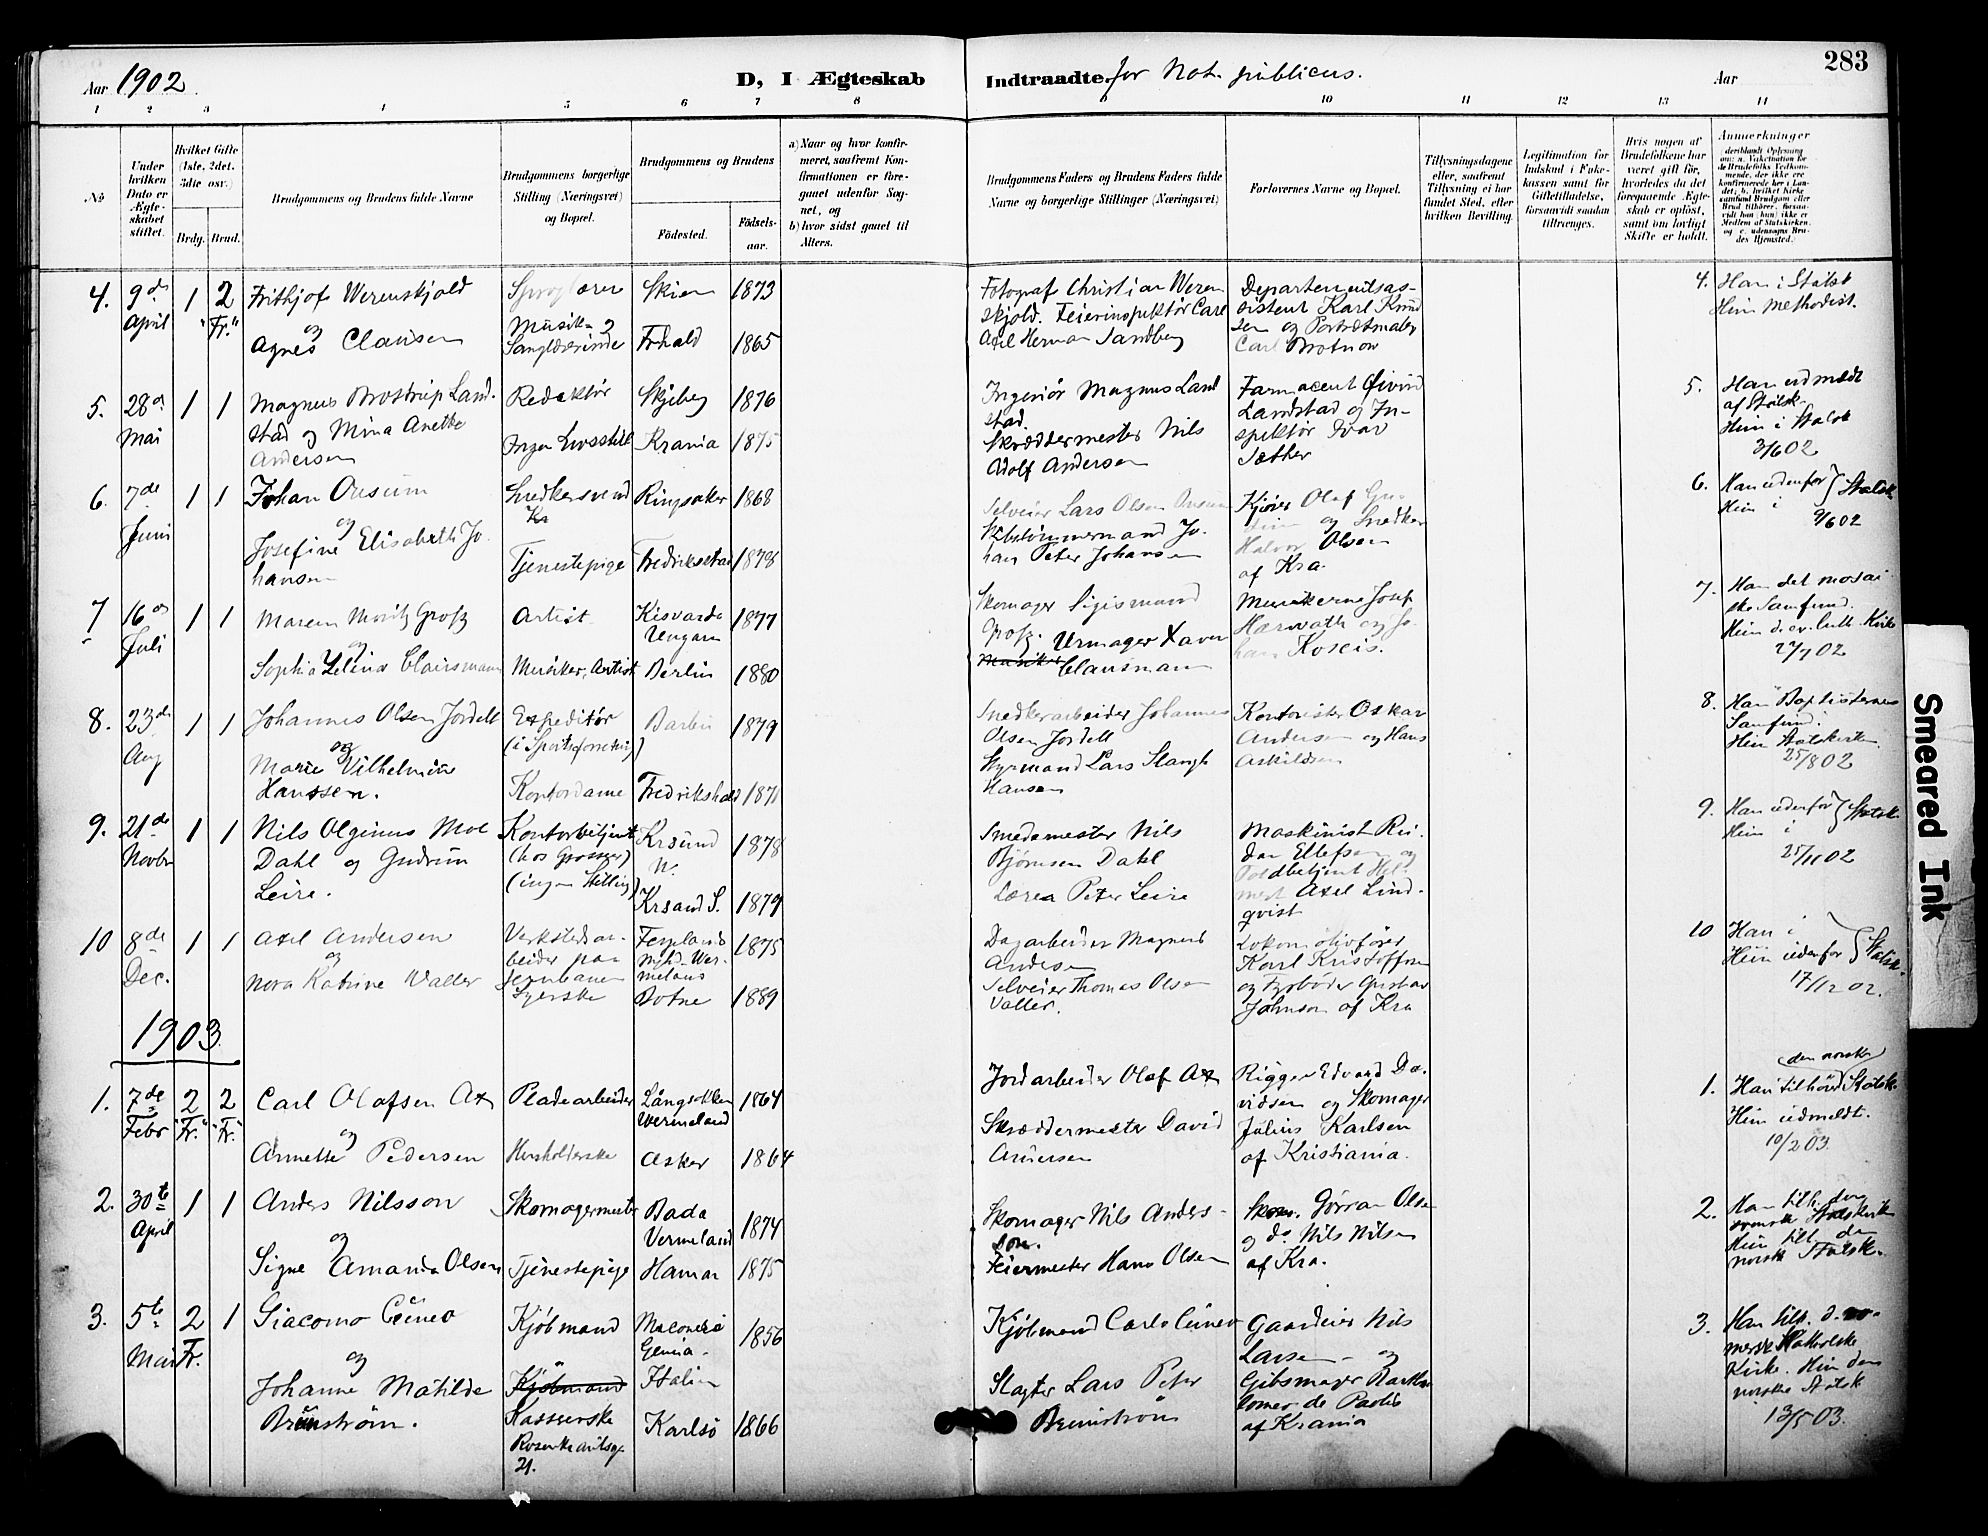 283
Aar 1902
D, I Ægteskab Indtraadte. for Not. publicus.
Aar
1 2 3 4 5 6 7 8 9 10 11 12 13 14
No
Under hvilken Dato er Ægteskabet stiftet.
Hvilket Gifte (1ste, 2det, 3die osv.)
Brdg. Brud.
Brudgommens og Brudens fulde Navne
Brudgommens borgerlige Stilling (Næringsvei) og Bopæl.
Brudgommens og Brudens
Fødested.
Fødselsaar.
a) Naar og hvor konfirmeret, saafremt Konfirmationen er foregaaet udenfor Sognet, og
b) hvor sidst gaaet til Alters.
Brudgommens Faders og Brudens Faders fulde Navne og borgerlige Stillinger (Næringsvei)
Forlovernes Navne og Bopæl.
Tillysningsdagene eller, saafremt Tillysning ei har fundet Sted, efter hvilken Bevilling.
Legitimation for Indskud i Enkekassen samt for Giftetilladelse, forsaavidt saadan tiltrænges.
Hvis nogen af Brudefolkene har været gift før, hvorledes da det foregaaende Ægteskab er opløst, samt om lovligt Skifte er holdt.
Anmerkninger
4. 9de April 1 2 "Fr."
Frithjof Werenskjold
og
Agnes Clausen
Sproglærer
Musik- og
Sanglærerinde
Skien 1873
Frhald 1865
Fotograf Christian Weren
skjold. Feierinspektør Carl
Axel Herman Sandberg
Departementsas-
sistent Karl Knud
sen og Portrætmaler
Carl
4. Han i Statsk
Hun Methodist.
5. 28de Mai 1 1
Magnus Brostrup Land-
stad og Mina Anette
Andersen
Redaktør
Ingen Livsstill
Skjeberg 1876
Krania 1875
Ingeniør Magnus Land
stad.
Skræddermester Nils
Adolf Andersen
Farmaceut Øivind
Landstad og In-
spektør Ivar
Sæther
5. Han udmeldt
af Statsk.
Hun i Statsk
3/6 02
6. 7de Juni 1 1
Johan Ousum
og
Josefine Elisabeth Jo-
hansen
Snedkersvend
Kr
Tjenestepige
Ringsaker 1868
Fredrikstad 1878
Selveier Lars Olsen Ousum
Skibstømmermand Jo-
han Peter Johansen
Kjører Olaf
og Snedker
Halvor Olsen
af Kra.
6. Han udenfor } Statsk.
Hun i
9/6 02
7 16de Juli 1 1
Marcus Moritz Grosz
og
Sophia Clausmann
Artist
Musiker, Artist
Kisvarda
Ungarn 1877
Berlin 1880
Skomager Sigismund
Grosz. Urmager Xaver
Clausmann
Musikerne Josef
Horvath og Jo-
han Koscis.
7. Han det mosai-
ske Samfund.
Hun d. ev. luth. Kirke
8. 23de Aug 1 1
Johannes Olsen Jordell
og
Marie Vilhelmine
Hanssen.
Expeditør
(i Sportsforretning)
Kontordame
1879
Fredrikshald 1871
Snedkerarbeider Johannes
Olsen Jordell
Styrmand Lars Stangh
Hansen
Kontorister Oskar
Andersen og Hans
Askildsen
8. Han Baptisternes
Samfund.
Hun Statskirk.
25/8 02
9. 21de Novbr 1 1
Nils Olginius Moe
Dahl og Gudrun
Leire.
Kontorbetjent
(hos Grosserer)
(ingen Stilling)
Krsund
N. 1878
Krsand S. 1879
Smedemester Nils
Bjørnsen Dahl
Lærer Peter Leire
Maskinist Rei-
dar Ellefsen og
Toldbetjent Hel-
mert Axel Lind-
qvist
9. Han udenfor } Statsk.
Hun i
25/11 02
10 8de Dec. 1 1
Axel Andersen
og
Nora Katrine Valler
Verkstedsar-
beider paa
Jernbanen
Syerske
Wer-
melans 1875
Botne 1889
Dagarbeider Magnus
Andersen
Selveier Thomas Olsen
Valler.
Lokomotivfører
Karl Kristoffersen
og Fyrbøder Gustav
Johnson af Kra
10 Han i
Hun udenfor } Statsk.
17/12 02.
1903.
1. 7de Febr 2 "Fr." 2 "Fr."
Carl Olafsen Ax
og
Annette Pedersen
Pladearbeider
Husholderske
Långsokken
Vermeland 1864
Asker 1864
Jordarbeider Olaf Ax
Skræddermester David
Andersen
Rigger Edvard Da-
vidsen og Skomager
Julius Karlsen
af Kristiania.
(den norske)
1. Han tilhører Statsk.
Hun udmeldt.
10/2 03.
2. 30te April 1 1
Anders Nilsson
og
Signe Amanda Olsen
Skomagermester
Tjenestepige
Bada
Vermeland 1874
Hamar 1875
Skomager Nils Anders-
son.
Feiermester Hans Olsen
Skom. Gøran Olsen
og do Nils Nilsen
af Kra.
2. Han tilh. den
svensk Statskirke
Hun tilh. den
norsk Statsk.
3. 5te Mai 2 Fr. 1
Giacomo Cuneo
og
Johanne Matilde
Brunström.
Kjøbmand
Kjøbmand
Kasserske
Rosenkrantzg.
21.
Maconesi
Genua-
Italien 1856
Karlsö 1866
Kjøbmand Carlo Cuneo
Slagter Lars Peter
Brunström
Gaardeier Nils
Larsen - og
Gibsmager Bartho
lomeo de Paolis
af Krania
3. Han tilh. d. ro-
mersk Katholske
Kirke. Hun den
norske Statsk
13/5 03.
Smeared Ink